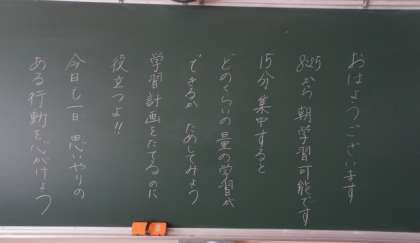 おはようございます
8:25から朝学習可能です
15分集中すると
どのくらいの量の学習が
できるか ためしてみよう
学習計画をたてるのに
役立つよ!!
今日も一日 思いやりの
ある行動を心がけよう